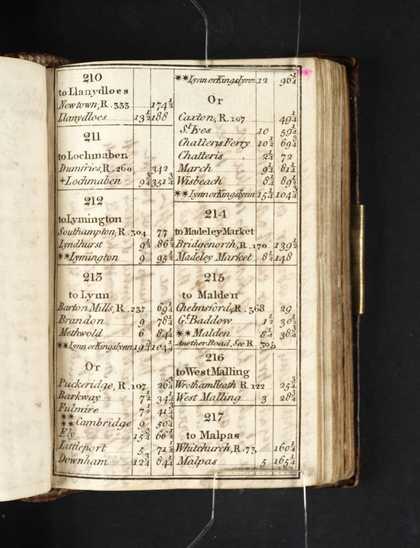 210
to Llanydloes
Newtown, R. 333 174½
Llanydloes 13½ 188
211
to Lochmaben
Dumfries, R. 260 342
+Lochmaben 9¼ 351¼
212
to Lymington
Southampton, R. 304 77
Lyndhurst 9½ 86½
**Lymington 9 95½
213
to Lynn
Barton Mills, R. 237 69¼
Brandon 9 78¼
Methwold 6 84¼
**Lynn or Kings lynn 19¾ 104¼
Or
Puckeridge, R. 107 26¾
Barkway 7½ 34¼
Fulmire 7½
**Cambridge 9
Ely 15¾ 66¾
Littleport 5
Downham 12¾ 84½
**Lynn or Kings lynn 12 96½
Or
Caxton, R. 107 49¼
St. Ives 10 59¼
Chatteris Ferry 10½ 69¾
Chatteris 2¼ 72
March 9½ 81½
Wisbeach 8¼ 89¾
**Lynn or Kings lynn 15½ 104¾
214
to Madeley Market
Bridgenorth, R. 170 139½
Madeley Market 8½ 148
215
to Malden
Chelmsford, R. 368 29
Gt. Baddow 1½ 30½
**Malden 8¼ 38¾
Another Road, See R. 305
216
to West Malling
Wrotham Heath R. 122 25¼
West Malling 3 28¼
217
to Malpas
Whitchurch, R. 73 160¼
Malpas 5 165¼